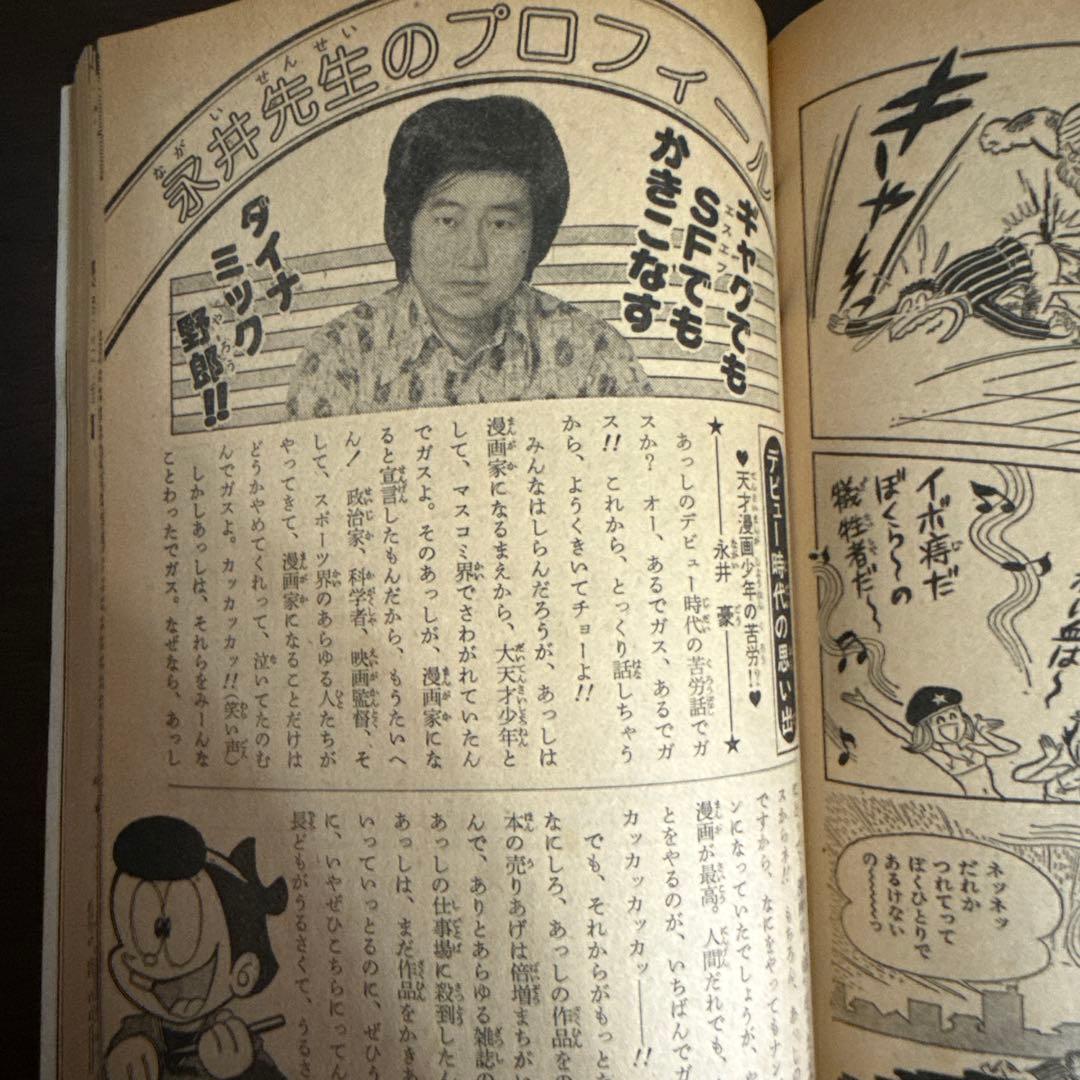 永井先生のプロフィール
ギャグでも
SFでも
かきこなす
ダイナ
ミック
野郎!!
デビュー時代の思い出
♥天才漫画少年の苦労!?♥
★――永井 豪――★
あっしのデビュー時代の苦労話でガ
スか? オー、あるでガス、あるでガ
ス!! これから、とっくり話しちゃう
から、ようくきいてチョーよ!!
みんなはしらんだろうが、あっしは
漫画家になるまえから、大天才少年と
して、マスコミ界でさわがれていたん
でガスよ。そのあっしが、漫画家にな
ると宣言したもんだから、もうたいへ
ん! 政治家、科学者、映画監督、そ
して、スポーツ界のあらゆる人たちが
やってきて、漫画家になることだけは
どうかやめてくれって、泣いてたのむ
んでガスよ。カッカッカッ!!(笑い声)
しかしあっしは、それらをみーんな
ことわったでガス。なぜなら、あっし
ですから、なにをやってもナン
ンになっていたでしょうが、や
漫画が最高。人間だれでも、
とをやるのが、いちばんでガ
カッカッカッカッ――!!
でも、それからがもっと
なにしろ、あっしの作品をの
本の売りあげは倍増まちがい
んで、ありとあらゆる雑誌の
あっしの仕事場に殺到したん
あっしは、まだ作品をかきあ
いっていっとるのに、ぜひう
に、いやぜひこちらにってん
長どもがうるさくて、うるさ
キーヤー
イボ痔だ
ぼくら〜の
犠牲者だ〜
ネッネッ
だれか
つれてって
ぼくひとりで
あるけない
の〜〜〜っ